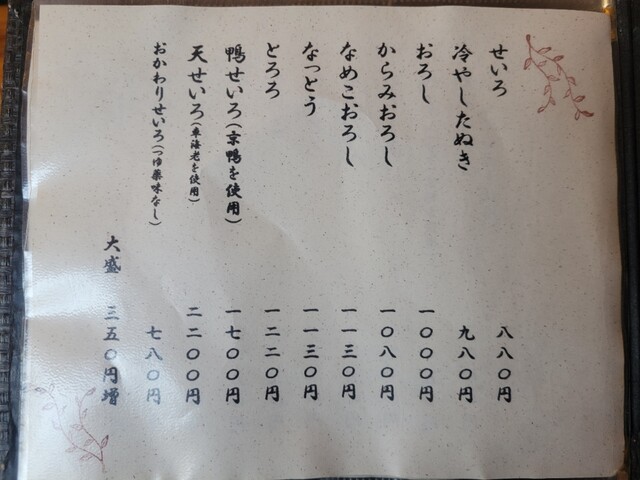 せいろ 八八〇円
冷やしたぬき 九八〇円
おろし 一〇〇〇円
からみおろし 一〇八〇円
なめこおろし 一一三〇円
なっとう 一一三〇円
とろろ 一二二〇円
鴨せいろ(京鴨を使用) 一七〇〇円
天せいろ(車海老を使用) 二二〇〇円
おかわりせいろ(つゆ薬味なし) 七八〇円
大盛 三五〇円増